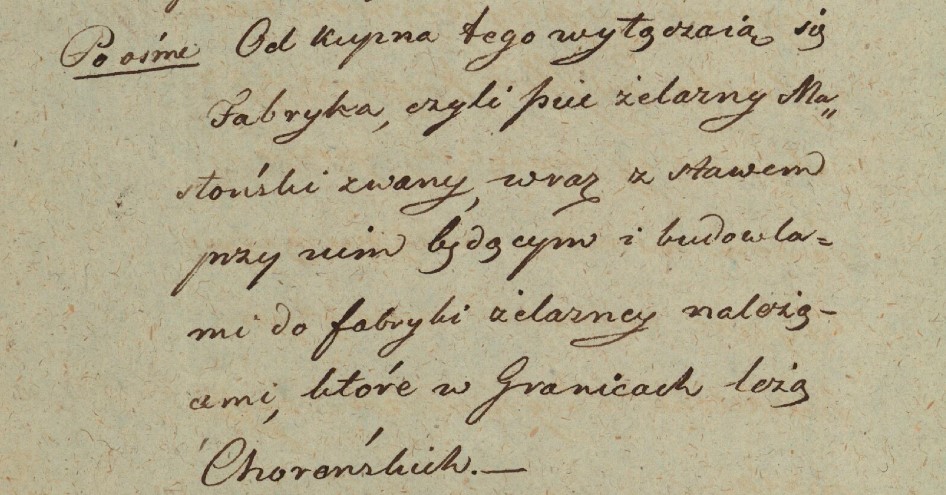 Po ośme Od kupna tego wyłączaią się
Fabryka, czyli piec żelazny Ma„
słoński zwany, wraz z stawem
przy nim będącym i budowla=
mi do fabryki żelazney należą-
cemi, które w Granicach leżą
Chorońskich. —